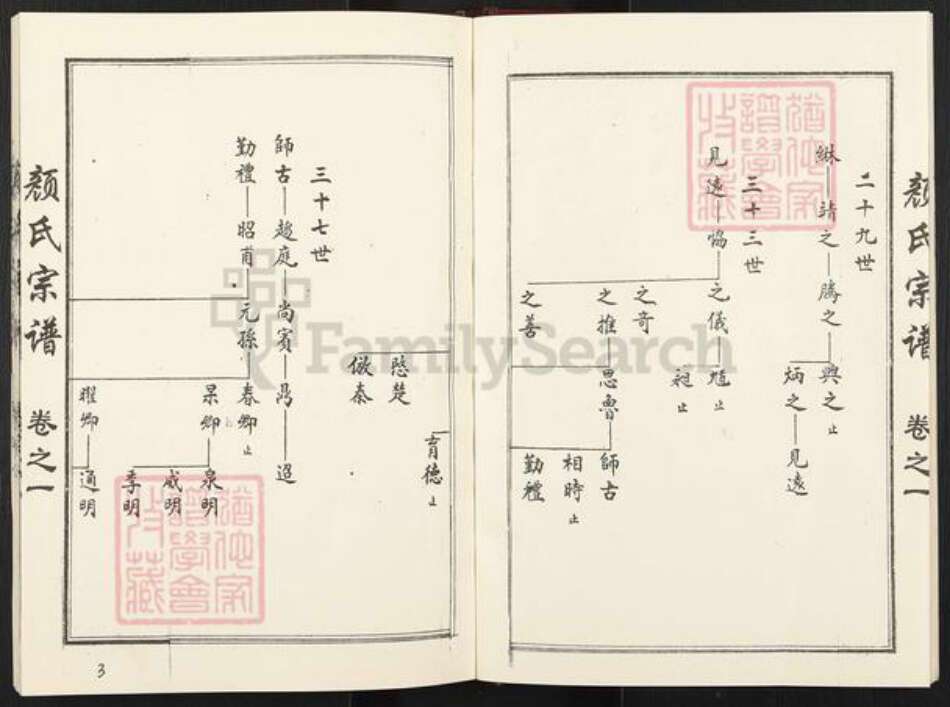 顏氏宗谱 卷之一
二十九世
綝 靖之 騰之 興之 止
炳之 見遠
三十三世
見遠 協 之儀 㥄 止
昶 止
之奇
之推 思魯 師古
相時 止
勤禮
之善
愍楚
儆泰
育德 止
三十七世
師古 趨庭 尚賓 鼎 迢
勤禮 昭甫 元孫 春卿 止
杲卿 泉明
威明
季明
曜卿 通明
顏氏宗谱 卷之一
3
FamilySearch
譜學會
收藏
譜學會
收藏